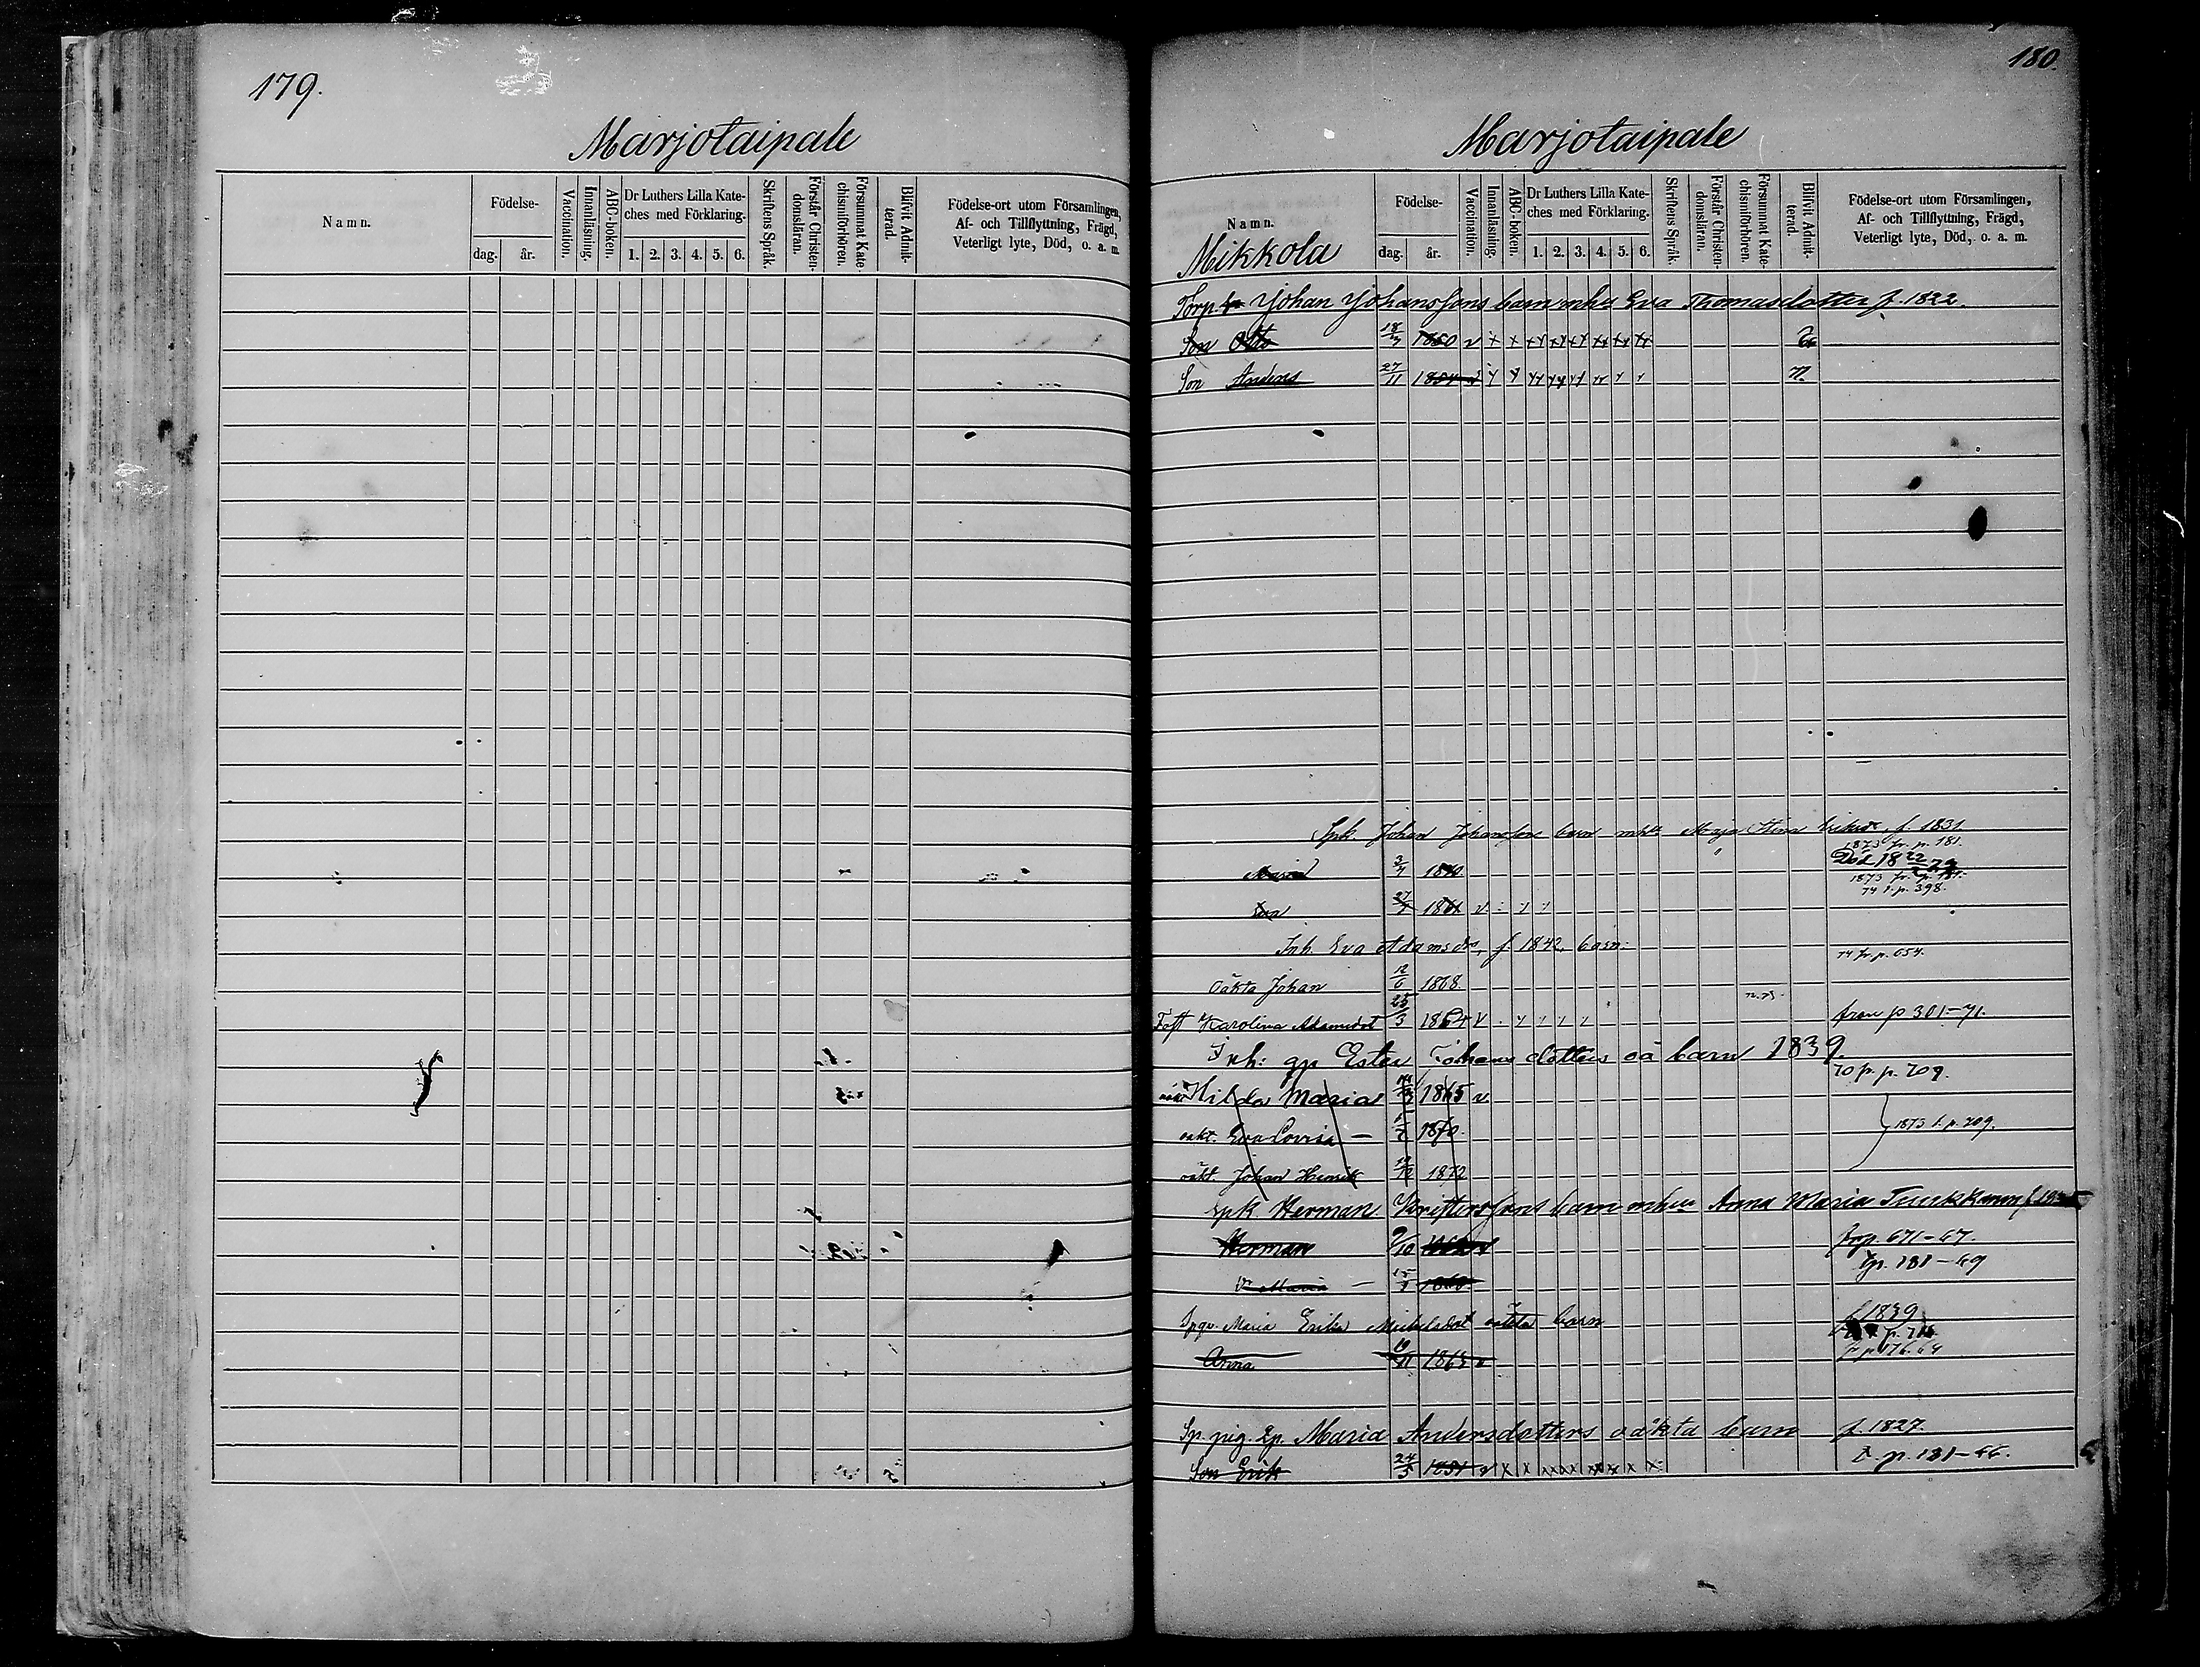 179.
Marjotaipale
Namn.
Födelse-
dag. år.
Vaccination.
Innanläsning.
ABC-boken.
Dr Luthers Lilla Kate-
ches med Förklaring.
1. 2. 3. 4. 5. 6.
Skriftens Språk.
Förstår Christen-
domsläran.
Försummat Kate-
chismiförhören.
Blifvit Admit-
terad.
Födelse-ort utom Församlingen,
Af- och Tillflyttning, Frägd,
Veterligt lyte, Död, o. a. m.
180.
Marjotaipale
Namn.
Mikkola
Födelse-
dag. år.
Vaccination.
Innanläsning.
ABC-boken.
Dr Luthers Lilla Kate-
ches med Förklaring.
1. 2. 3. 4. 5. 6.
Skriftens Språk.
Förstår Christen-
domsläran.
Försummat Kate-
chismiförhören.
Blifvit Admit-
terad.
Födelse-ort utom Församlingen,
Af- och Tillflyttning, Frägd,
Veterligt lyte, Död, o. a. m.
Torp. Johan Johanssons barn mhu Eva Thomasdotter f. 1822.
Son Otto 1850 v x x
Son Anders 27/11 1854
Johan Johansson barn Maja Stina f. 1831
1873 fr. p. 181.
Maria 3/7 1870 Död
1873 fr. p. 181.
74 t. p. 398.
Eva 1861 v
Inh. Eva Adamsdr, f. 1842, barn: 74 fr. p. 654.
Oäkta Johan 12/6 1868
Karolina Adamsdot 25/3 1864 v från p 301-71.
Inh: gp Ester Johansdotters oä barn 1839.
70 fr. p. 709.
Hilda Maria 1865 v
oäkt. Eva Lovisa 1870. 1873 t. p. 709.
oäkt. Johan Henrik 1872
Spk Herman barn mhu Anna Maria
Herman 9/10 fr p. 671-67.
t p. 181-69
Maria 1868
Maria Erika Mickelsdot oäkta barn f. 1839
Anna 19/11 1863 v
Sp. pig. Ep. Maria Andersdotters oäkta barn f. 1827.
Son Erik 24/5 1851 v x x t. p. 181-66.